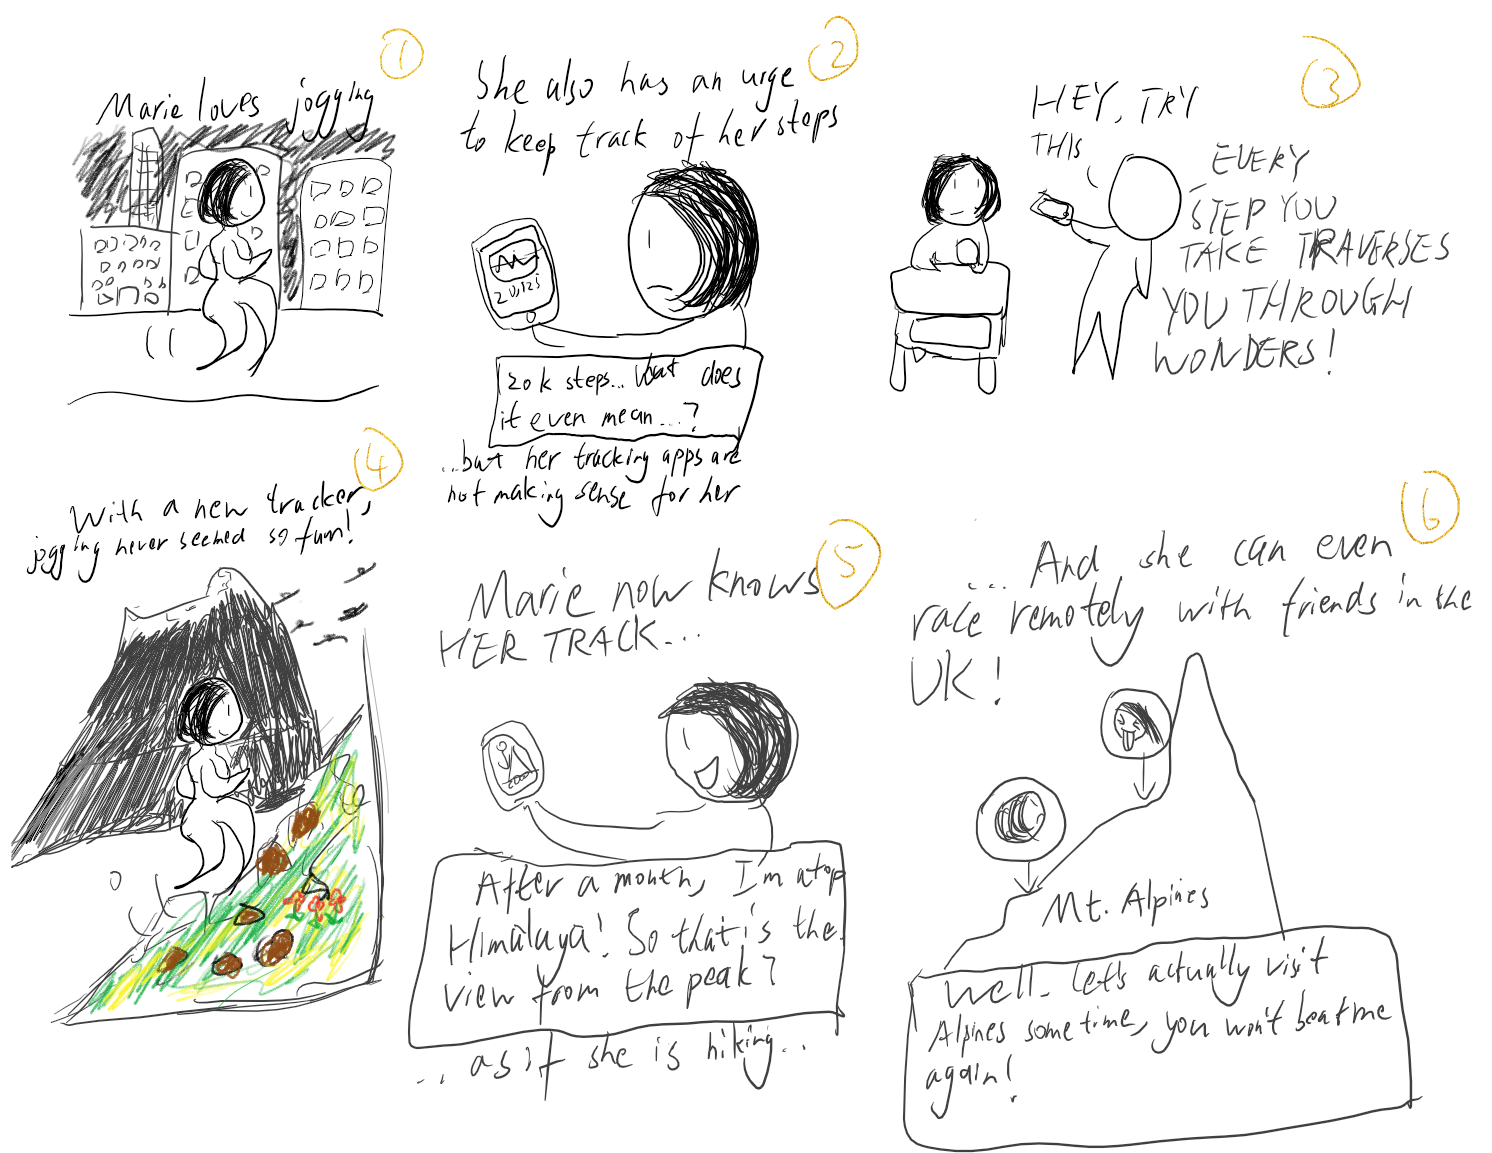 1
Marie loves jogging
2
She also has an urge
to keep track of her steps
20,125
20k steps... what does
it even mean...?
...but her tracking apps are
not making sense for her
3
HEY, TRY
THIS
EVERY
STEP YOU
TAKE TRAVERSES
YOU THROUGH
WONDERS!
4
With a new tracker,
jogging never seemed so fun!
5
Marie now knows
HER TRACK...
After a month, I'm atop
Himalaya! So that is the
view from the peak?
... as if she is hiking...
6
... And she can even
race remotely with friends in the
UK!
Mt. Alpines
Well. Let's actually visit
Alpines sometime, you won't beat me
again!